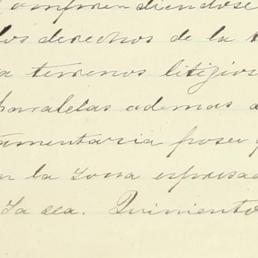 omprendiendose
los derechos de la t
a terrenos litijios
paralelas ademas a
amentaria posee q
n la zona espresad
Ya sea. Quiniento